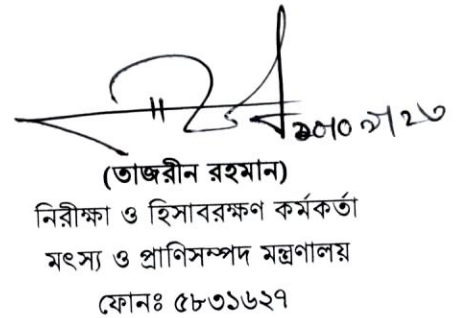 (তাজরীন রহমান)
নিরীক্ষা ও হিসাবরক্ষণ কর্মকর্তা
মৎস্য ও প্রাণিসম্পদ মন্ত্রণালয়
ফোনঃ ৫৮৩১৬২৭